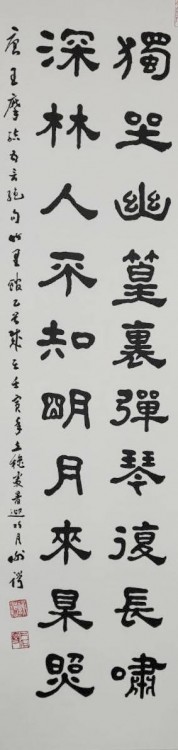 獨坐幽篁裏彈琴復長嘯
深林人不知明月來相照
唐王摩詰五言絕句竹里館乙首